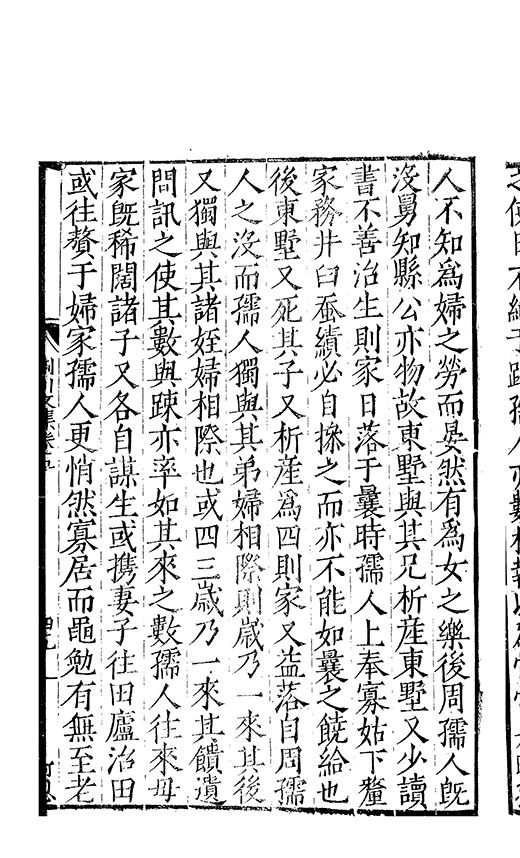 人不知爲婦之勞而晏然有爲女之樂後周孺人旣
沒舅知縣公亦物故東墅與其兄析産東墅又少讀
書不善治生則家日落于曩時孺人上奉寡姑下釐
家務井臼蚕績必自操之而亦不能如曩之饒給也
後東墅又死其子又析産爲四則家又益落自周孺
人之沒而孺人獨與其弟婦相際則歲乃一來其後
又獨與其諸姪婦相際也或四三歲乃一來其饋遺
問訊之使其數與踈亦率如其來之數孺人往來母
家旣稀闊諸子又各自謀生或携妻子往田廬治田
或往贅于婦家孺人更悄然寡居而黽勉有無至老